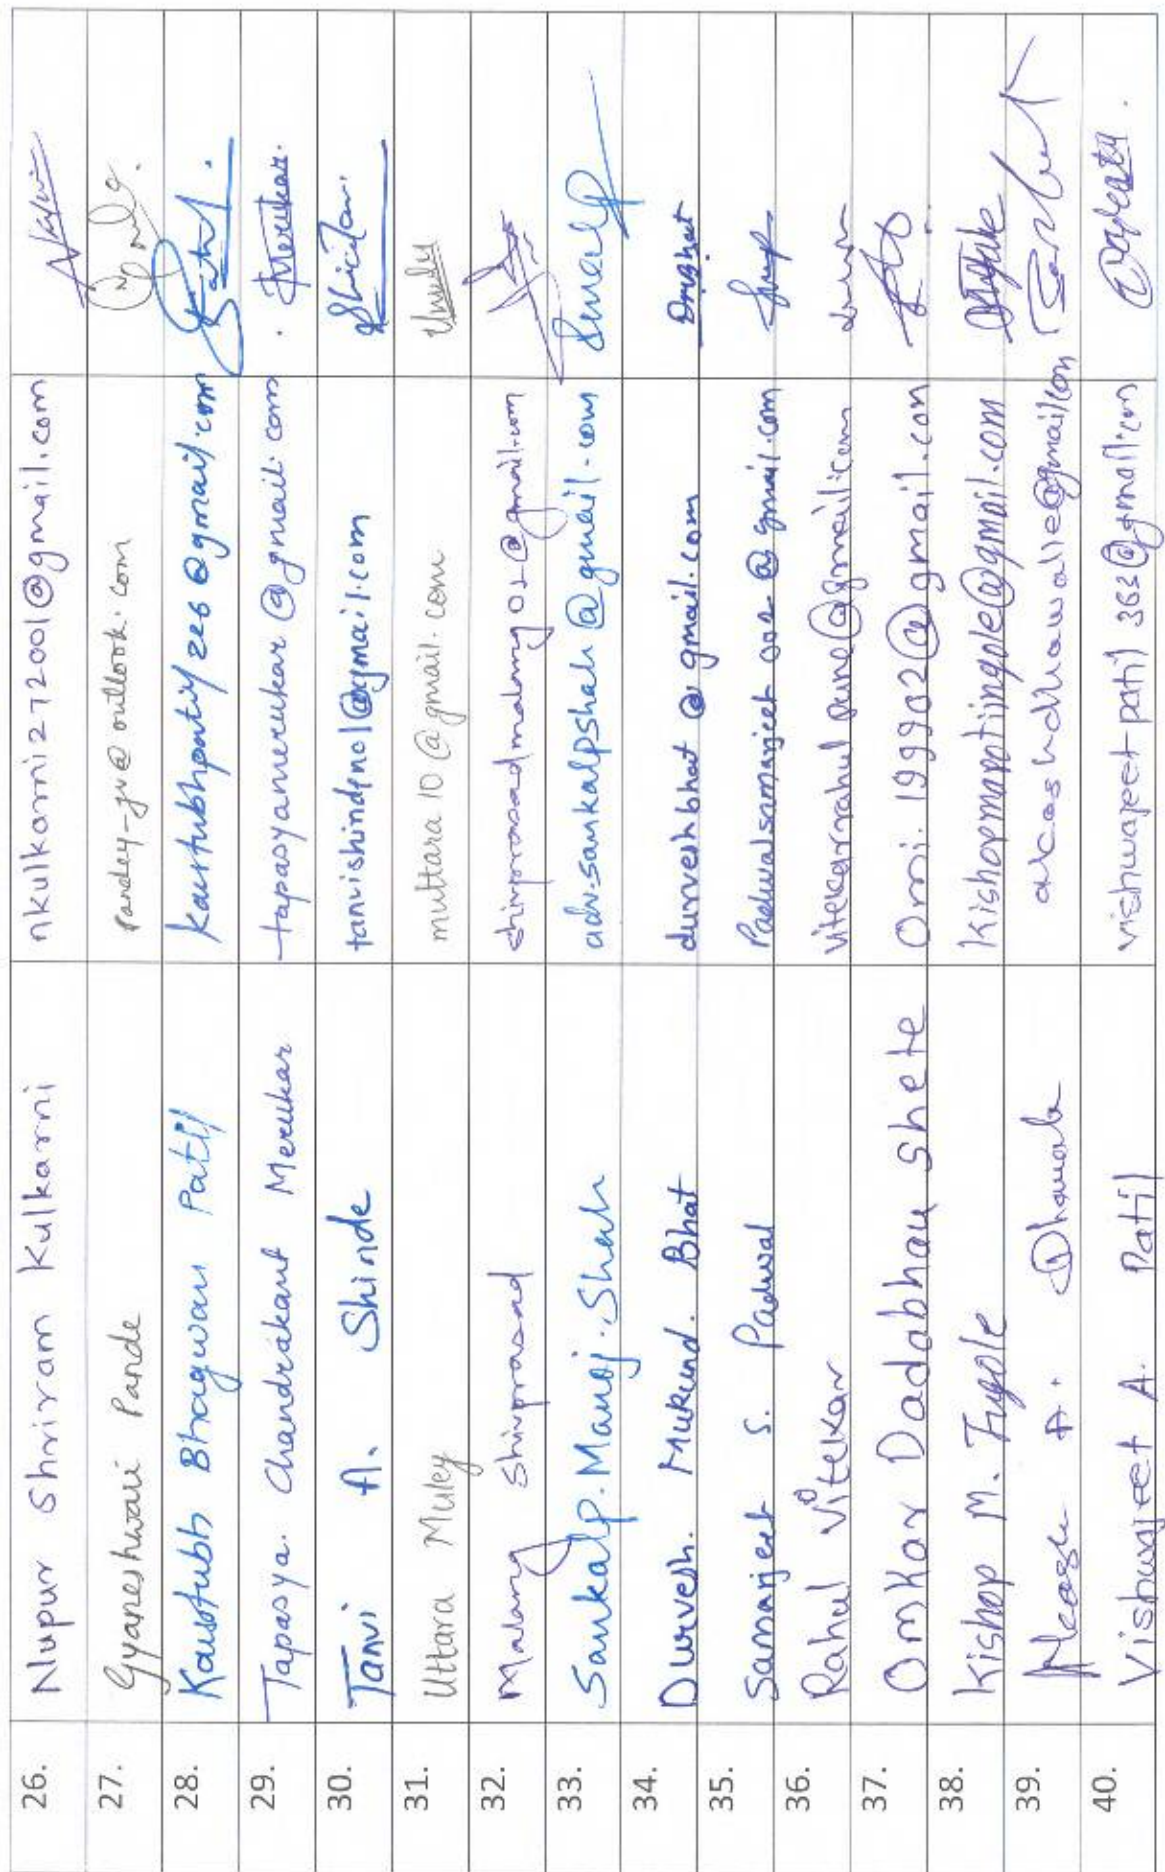 26. Nupur Shriram Kulkarni nkulkarni272001@gmail.com
27. Gyaneshwari Pande pandey-jv@outlook.com
28. Kaustubh Bhagwan Patil kaustubhpatil226@gmail.com
29. Tapasya. Chandrakant Merukar tapasyamerukar@gmail.com Merukar.
30. Tanvi A. Shinde tanvishinde1101@gmail.com
31. Uttara Muley muttara10@gmail.com
32. Malang Shivprasad shivprasadmalang02@gmail.com
33. Sankalp. Manoj. Shah adv.sankalpshah@gmail.com
34. Durvesh. Mukund. Bhat durveshbhat@gmail.com
35. Samarjeet S. Padwal Padwalsamarjeet002@gmail.com
36. Rahul Vitekar vitekarrahul pune@gmail.com
37. Omkar Dadabhau Shete Omi.199902@gmail.com
38. Kishor M. Ingole kishormarotiingole@gmail.com
39. Akash A. Dhawale akashdhawalie@gmail.com
40. Vishwajeet A. Patil vishwajeetpatil363@gmail.com